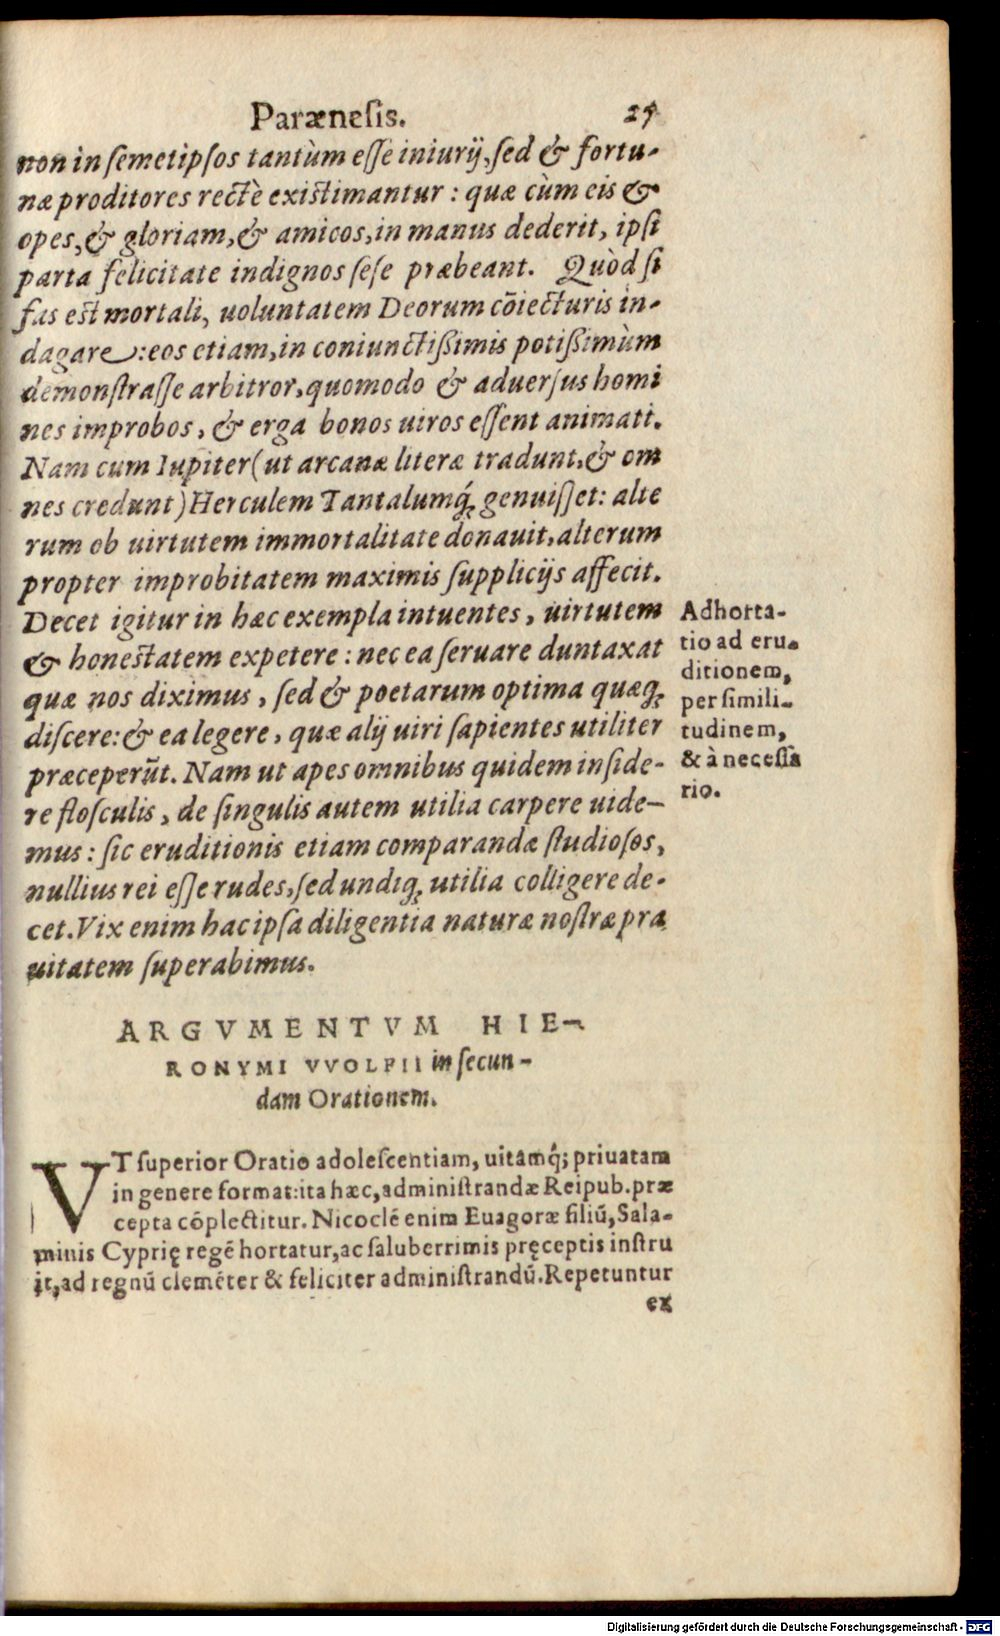 Parænesis.
25
non in semetipsos tantùm esse iniurij, sed & fortu-
næ proditores rectè existimantur: quæ cùm eis &
opes, & gloriam, & amicos, in manus dederit, ipsi
parta felicitate indignos sese præbeant. Quòd si
fas est mortali, uoluntatem Deorum cōiecturis in-
dagare: eos etiam, in coniunctißimis potißimùm
demonstrasse arbitror, quomodo & aduersus homi
nes improbos, & erga bonos uiros essent animati.
Nam cum Iupiter (ut arcanæ literæ tradunt, & om
nes credunt) Herculem Tantalumq́; genuisset: alte
rum ob uirtutem immortalitate donauit, alterum
propter improbitatem maximis supplicijs affecit.
Decet igitur in hæc exempla intuentes, uirtutem
& honestatem expetere: nec ea seruare duntaxat
quæ nos diximus, sed & poetarum optima quæq;
discere: & ea legere, quæ alij uiri sapientes utiliter
præceperūt. Nam ut apes omnibus quidem inside-
re flosculis, de singulis autem utilia carpere uide-
mus: sic eruditionis etiam comparandæ studiosos,
nullius rei esse rudes, sed undiq; utilia colligere de-
cet. Vix enim hac ipsa diligentia naturæ nostræ pra
uitatem superabimus.
Adhorta-
tio ad eru-
ditionem,
per simili-
tudinem,
& à necessa
rio.
ARGVMENTVM HIE-
RONYMI VVOLFII in secun-
dam Orationem.
VT superior Oratio adolescentiam, uitamq́; priuatam
in genere format: ita hæc, administrandæ Reipub. præ
cepta cōplectitur. Nicoclē enim Euagoræ filiū, Sala-
minis Cyprię regē hortatur, ac saluberrimis pręceptis instru
it, ad regnū clemēter & feliciter administrandū. Repetuntur
ex
Digitalisierung gefördert durch die Deutsche Forschungsgemeinschaft - DFG